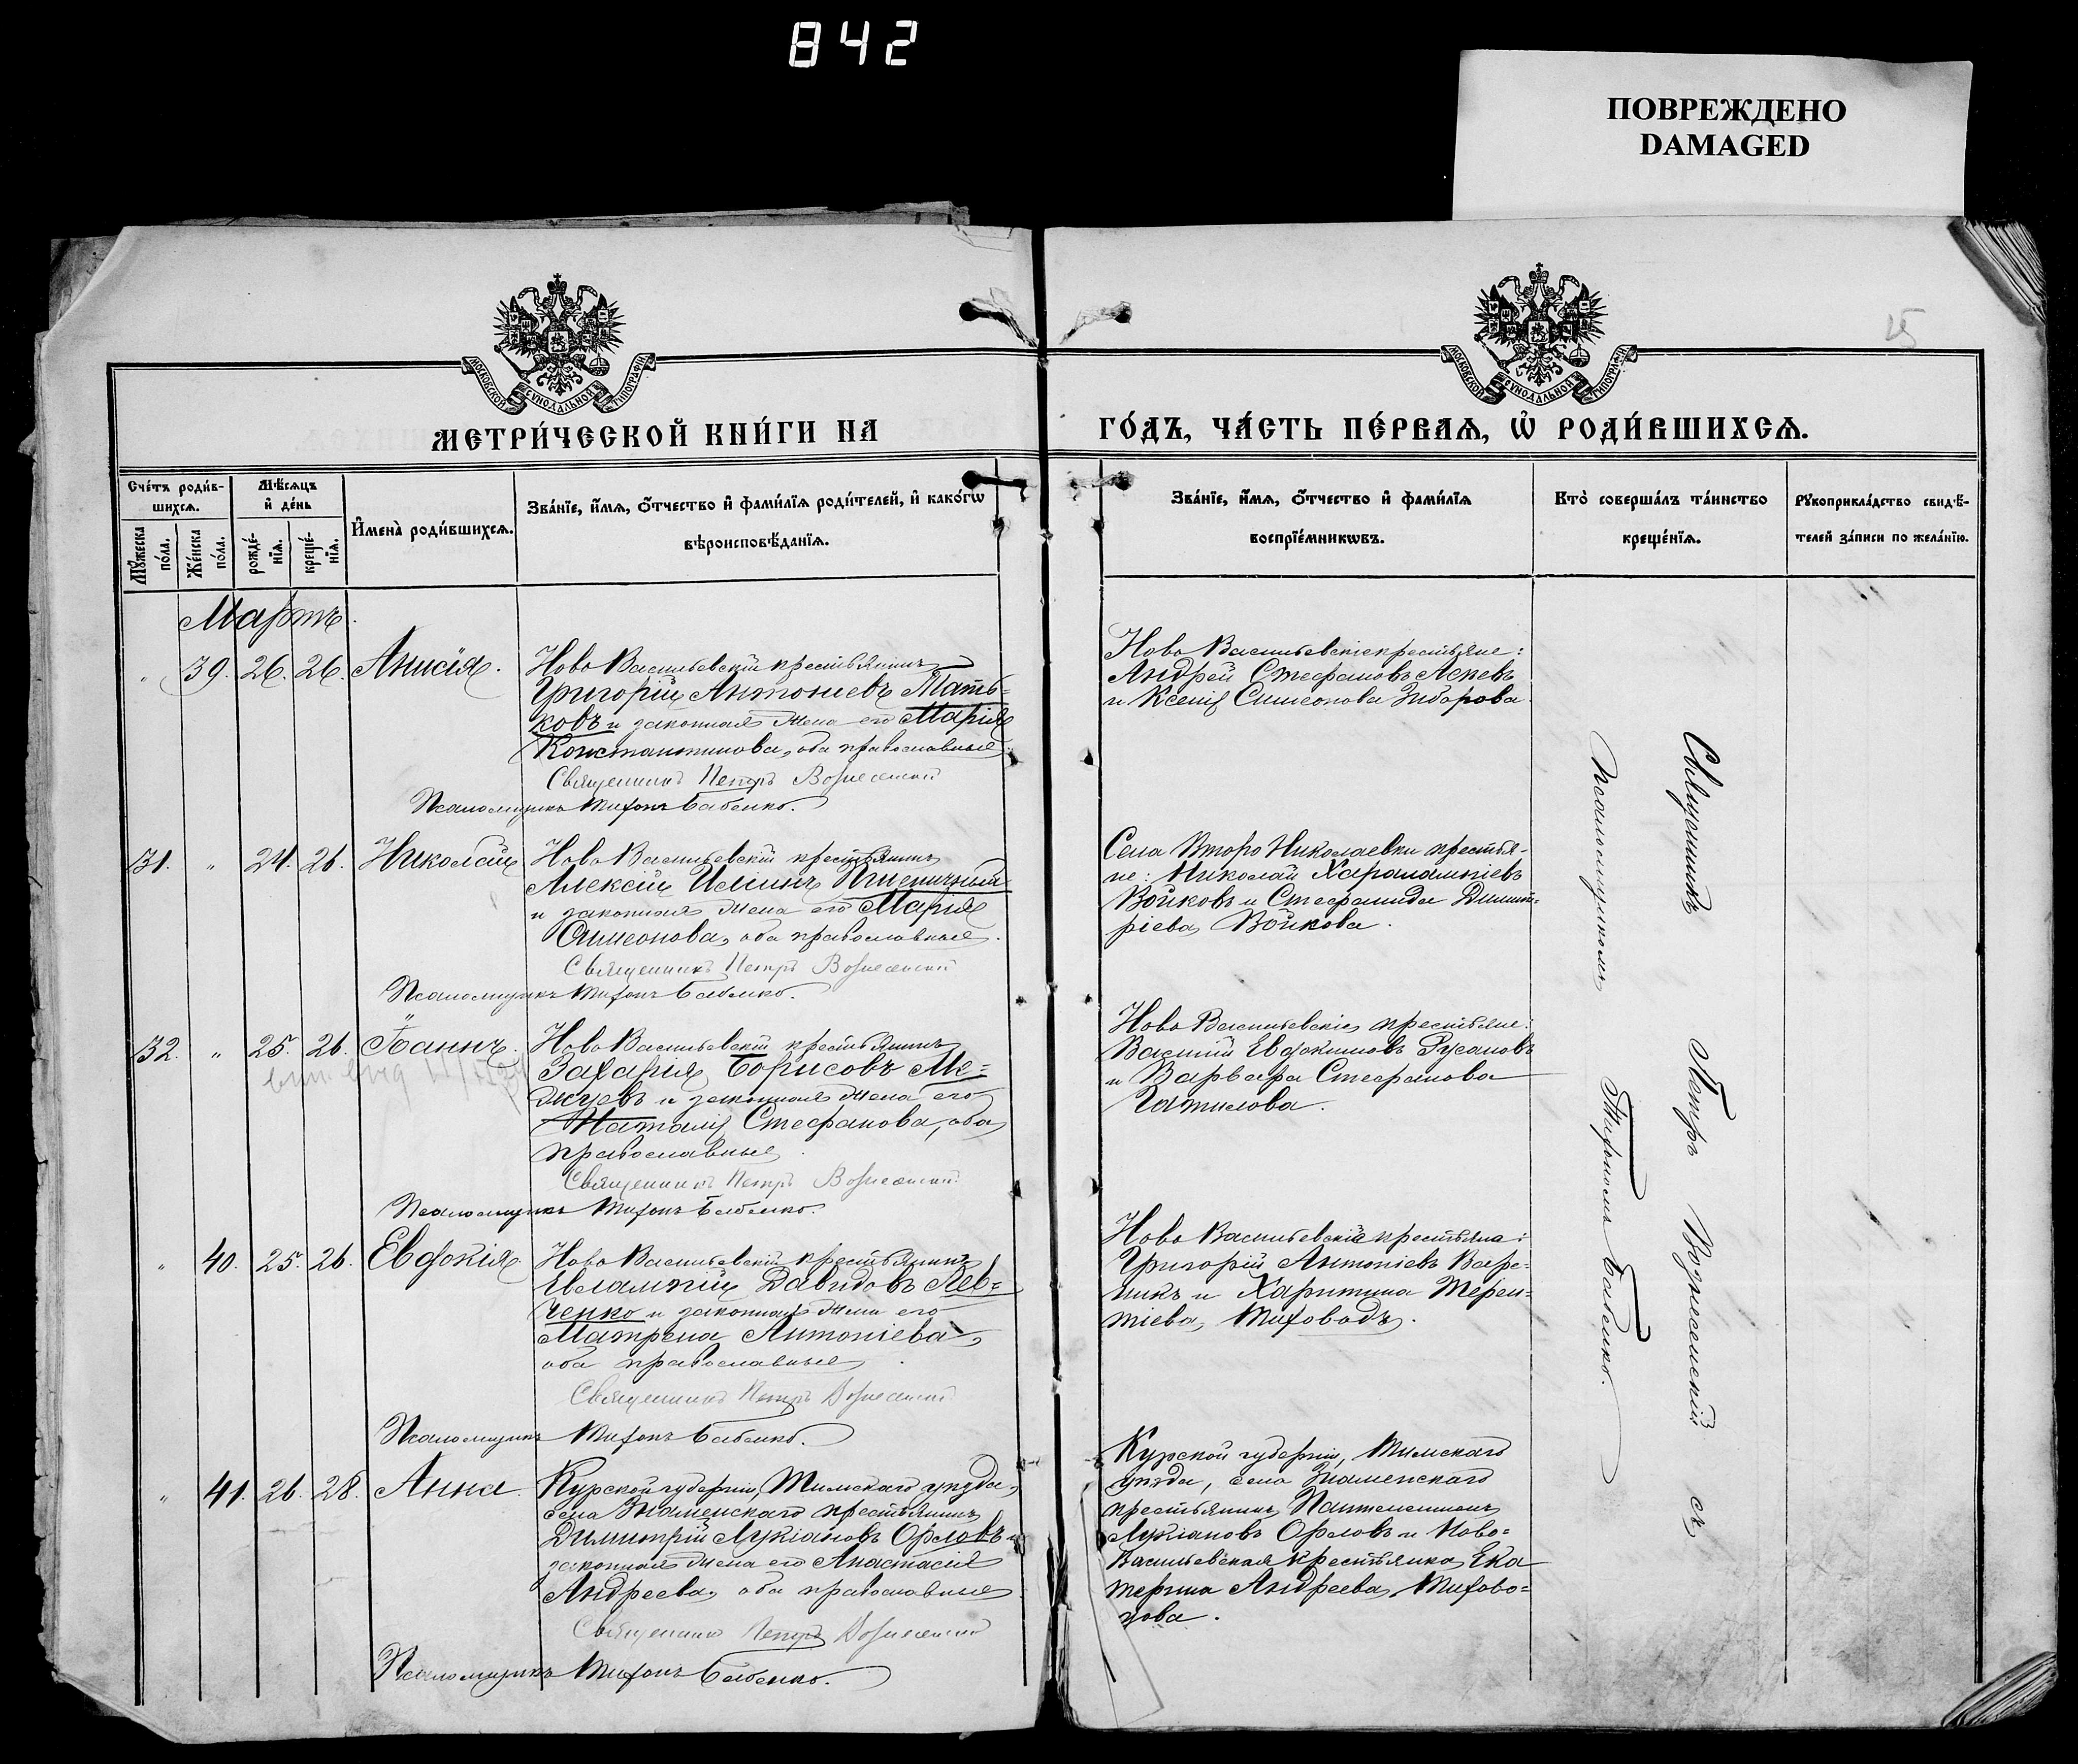 842
ПОВРЕЖДЕНО
DAMAGED
МОСКОВСКОЙ СѴНОДАЛЬНОЙ ТИПОГРАФІИ
МОСКОВСКОЙ СѴНОДАЛЬНОЙ ТИПОГРАФІИ
МЕТРИ́ЧЕСКОЙ КНИ́ГИ НА
ГО́ДЪ, ЧА́СТЬ ПЕ́РВАѦ, Ѽ РОДИ́ВШИХСѦ.
Сче́тъ роди́в-
шихсѧ.
Мꙋ́жеска по́ла.
Же́нска по́ла.
Мѣ́сѧцъ
и҆ де́нь
рожде́-
нїѧ.
креще́-
нїѧ.
И҆мена̀ роди́вшихсѧ.
Зва́нїе, и҆́мѧ, ѻ҆́тчество и҆ фами́лїѧ роди́телей, и҆ како́гѡ
вѣроисповѣ́данїѧ.
Зва́нїе, и҆́мѧ, ѻ҆́тчество и҆ фами́лїѧ
воспрїе́мникѡвъ.
Кто̀ соверша́лъ та́инство
креще́нїѧ.
Рꙋкоприкла́дство свидѣ́-
телей за́писи по жела́нїю.
Мартъ.
39. 26. 26. Анисія.
Ново Васильевскій крестьянинъ
Григорій Антоніевъ Мать=
ковъ и законная жена его Марія
Константинова, оба православные
Священникъ Петръ Вознесенскій
Псаломщикъ Тихонъ Бабенко.
Ново Васильевскіе крестьяне:
Андрей Стефановъ
и Ксенія Симеонова Зиборова
31. " 24. 26. Николай
Ново Васильевскій крестьянинъ
Алексій Пшеничный
и законная жена его Марія
Симеонова, оба православные.
Священникъ Петръ Вознесенскій
Псаломщикъ Тихонъ Бабенко.
Села Второ Николаевки крестья-
не: Николай Харалампіевъ
Войковъ и Стефанида Димит-
ріева Войкова.
32. " 25. 26. Іоаннъ.
Ново Васильевскій крестьянинъ
Захарія Борисовъ Ме=
жуевъ и законная жена его
Наталія Стефанова, оба
православные
Священникъ Петръ Вознесенскій
Псаломщикъ Тихонъ Бабенко.
Ново Васильевскіе крестьяне:
Василій Евдокимовъ Русановъ
и Варвара Стефанова
Гатилова.
" 40. 25. 26. Евдокія
Ново Васильевскій крестьянинъ
Евлампій Давидовъ Лев=
ченко и законная жена его
Матрена Антоніева,
оба православные
Священникъ Петръ Вознесенскій
Псаломщикъ Тихонъ Бабенко.
Ново Васильевскіе крестьяне:
Григорій Антоніевъ Варе=
никъ и Харитина Терен=
тіева
" 41. 26. 28. Анна.
Курской губерніи, Тимскаго уѣзда,
села Знаменскаго крестьянинъ
Димитрій Лукіановъ Орловъ и
законная жена его Анастасія
Андреева, оба православные
Священникъ Петръ Вознесенскій
Псаломщикъ Тихонъ Бабенко.
Курской губерніи, Тимскаго
уѣзда, села Знаменскаго
крестьянинъ Пантелеимонъ
Лукіановъ Орловъ и Ново=
Васильевская крестьянка Ека
терина Андреева
Священникъ Петръ Вознесенскій съ
псаломщикомъ Тихономъ Бабенко.